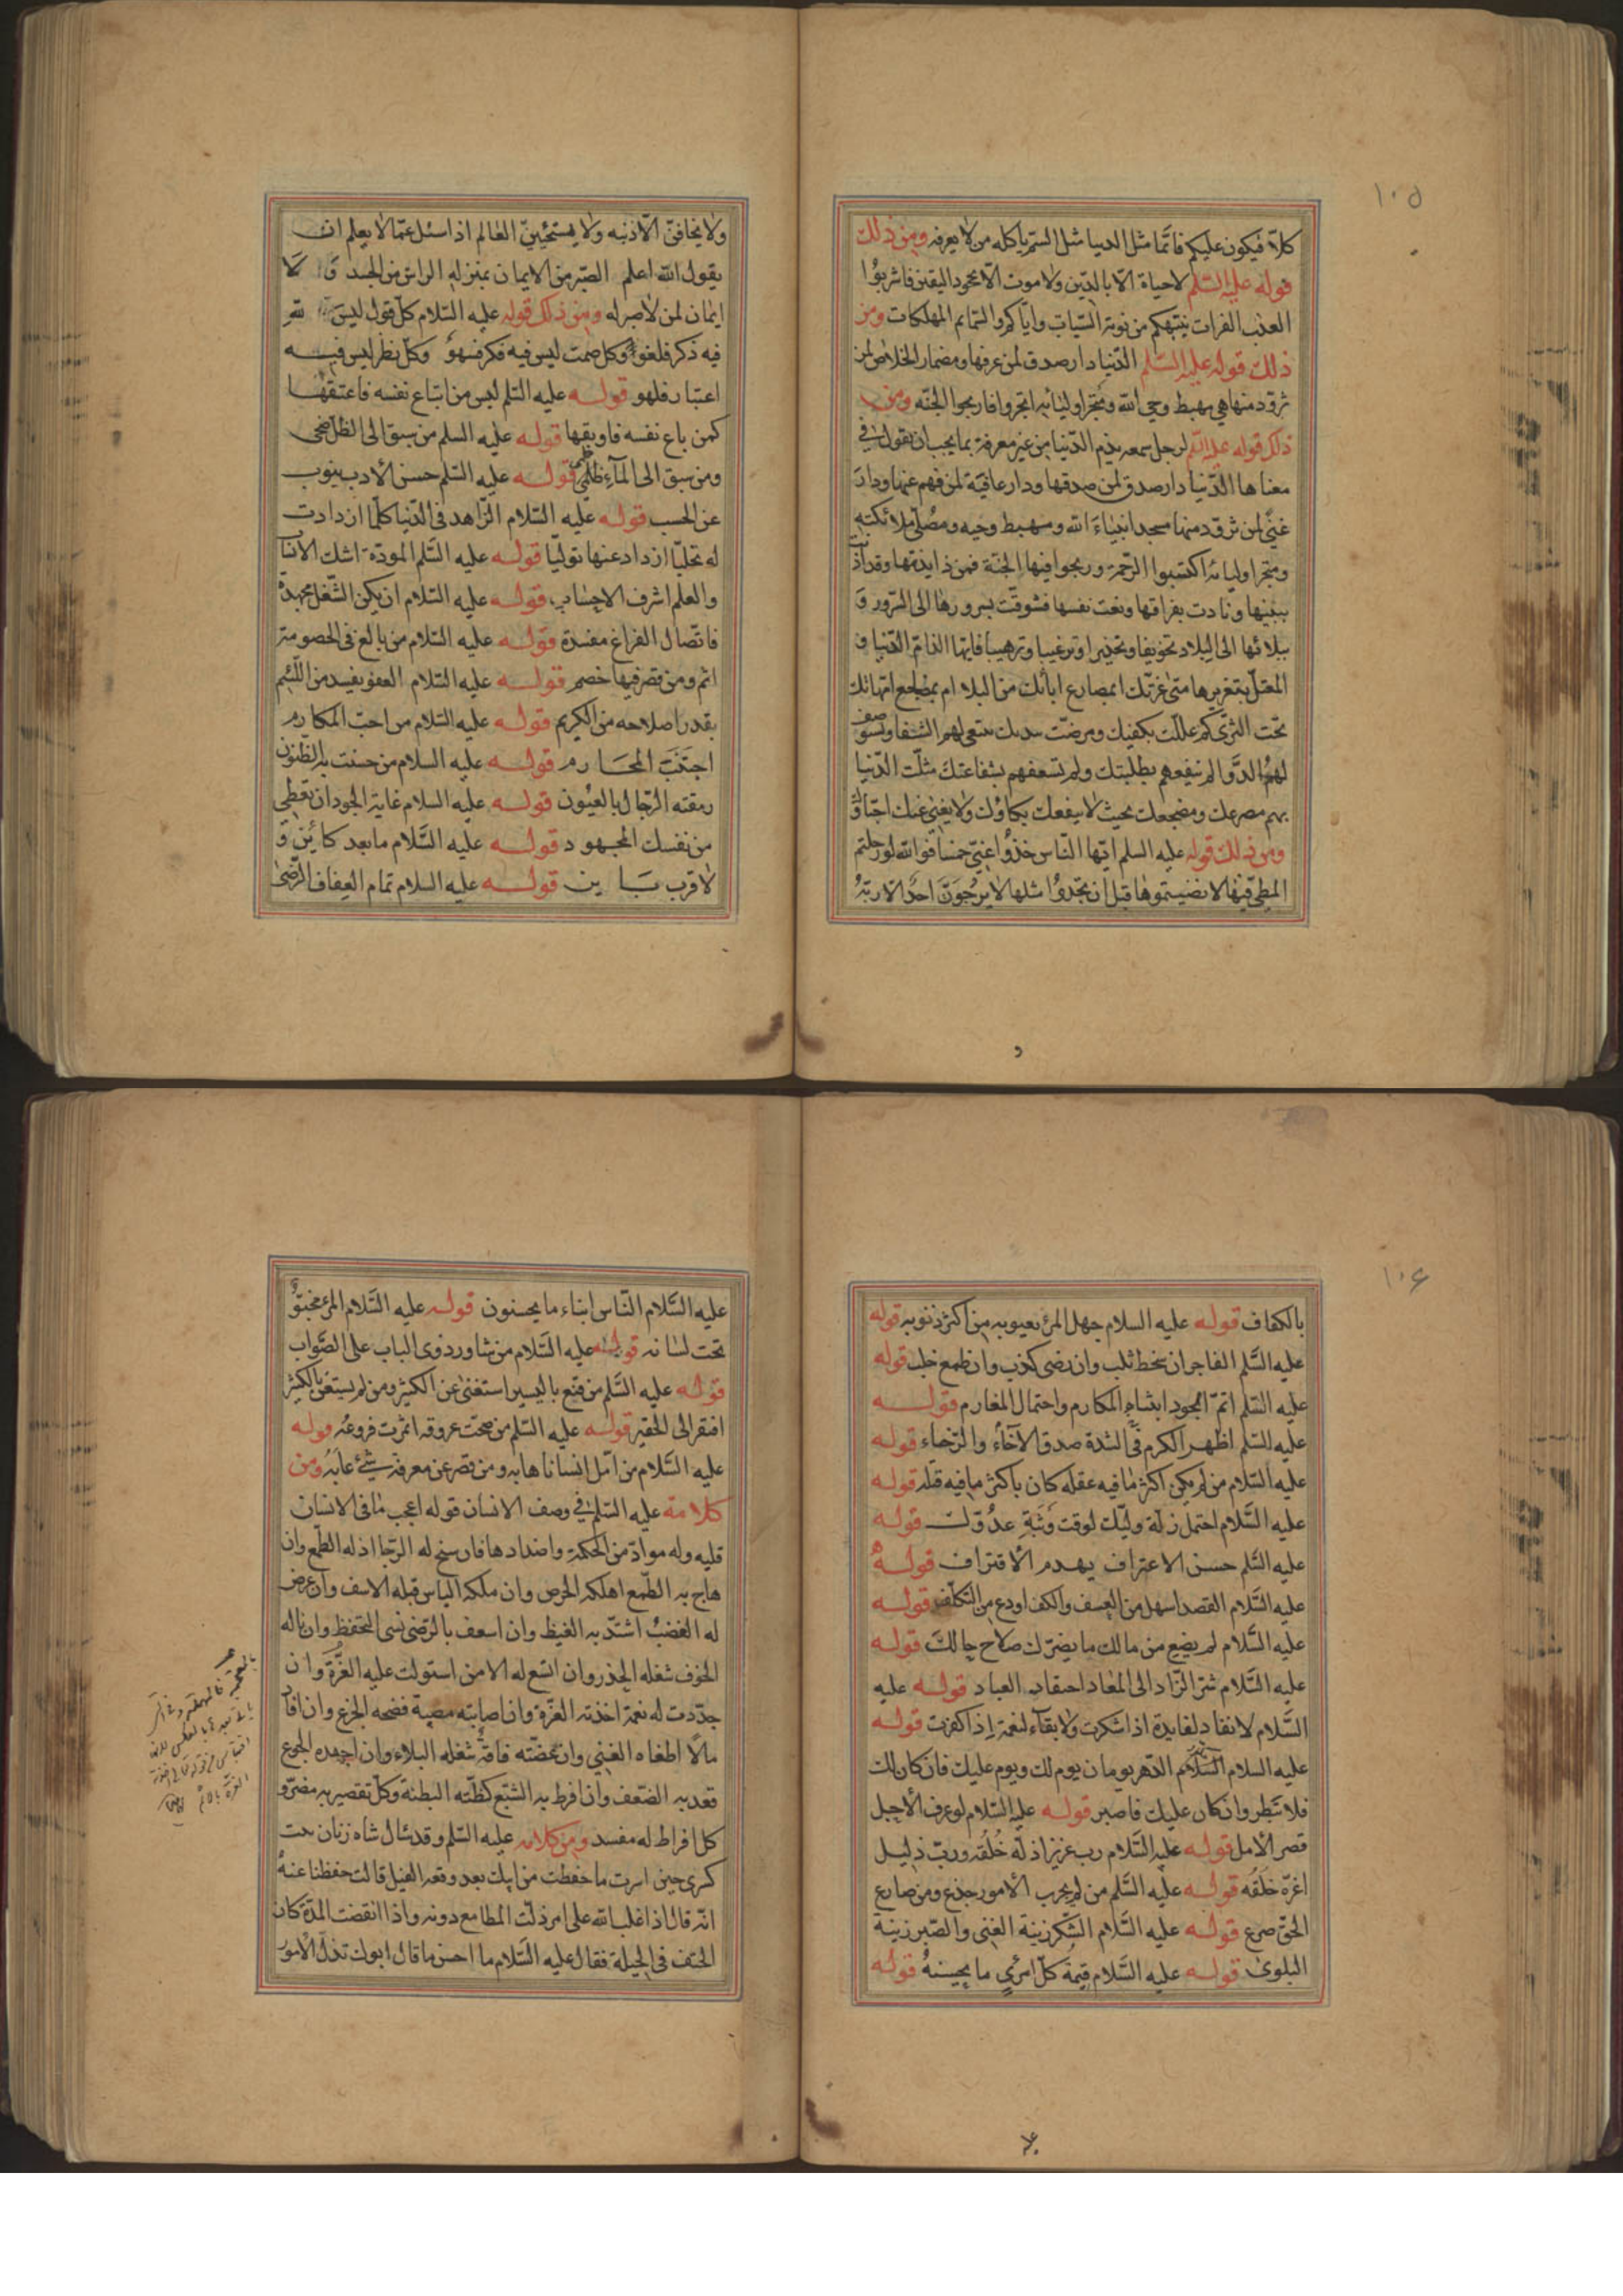 ١٠٥
كلاّ فيكون عليكم فانّما مثل الدنيا مثل السّم ياكله من لا يعرفه ومن ذلك
قوله عليه السّلم لا حياة الّا بالدّين ولا موت الّا بجحود اليقين فاشربوا
العذب الفرات ينبّهكم من نومة السّبات وايّاكم والسّمايم المهلكات ومن
ذلك قوله عليه السّلم الدّنيا دار صدق لمن عرفها ومضمار الخلاص لمن
تزوّد منها هي مهبط وحي الله ومتجر اوليائه اتجروا فاربحوا الجنّه ومن
ذلك قوله عليه السّلم لرجل سمعه يذم الدّنيا من غير معرفة بما يجب ان يقول في
معناها الدّنيا دار صدق لمن صدقها ودار عافية لمن فهم عنها ودار
غنًى لمن تزوّد منها مسجد انبياء الله ومهبط وحيه ومصلّى ملائكته
ومتجر اوليائه اكتسبوا الرّحمة وربحوا فيها الجنّة فمن ذا يذمّها وقد آذنت
ببينها ونادت بفراقها ونعت نفسها فشوقّت بسرورها الى السّرور و
ببلائها الى البلاد تخويفا وتحذيرا وترغيبا وترهيبا فايّها الذامّ الدّنيا و
المعتلّ بتغريرها متى غرّتك ابمصارع ابائك من البلاء ام بمضاجع امّهاتك
تحت الثرّى كم عللت بكفيك ومرضت بيديك تبتغي لهم الشفا وتستوصف
لهم الدّوا لم تنفعهم بطلبتك ولم تسعفهم بشفاعتك مثلّت الدّنيا
بهم مصرعك ومضجعك بحيث لا ينفعك بكاؤك ولا يغني عنك احبّاؤك
ومن ذلك قوله عليه السلم ايّها النّاس خذوا عنّي خمسا فوالله لو رحلتم
المطيّ فيها لانضيتموها قبل ان تجدوا مثلها لا يرجونّ احد الّا ربّه
ولا يخافنّ الّا ذنبه ولا يستحيينّ العالم اذا سئل عمّا لا يعلم ان
يقول الله اعلم الصّبر من الايمان بمنزلة الراس من الجسد و لا
ايمان لمن لا صبر له ومن ذلك قوله عليه السّلام كلّ قول ليس لله
فيه ذكر فلغو وكلّ صمت ليس فيه فكر فسهو وكلّ نظر ليس فيه
اعتبار فلهو قوله عليه السّلم ليس من ابتاع نفسه فاعتقها
كمن باع نفسه فاوبقها قوله عليه السلم من سبق الى الظلّ ضحى
ومن سبق الى المآء ظمئ قوله عليه السّلم حسن الأدب ينوب
عن الحسب قوله عليه السّلام الزّاهد في الدّنيا كلّما ازدادت
له تحليّا ازداد عنها تولّيا قوله عليه السّلم المودّة اشبك الانساب
والعلم اشرف الاحساب قوله عليه السّلام ان يكن الشّغل مجهدة
فاتّصال الفراغ مفسدة قوله عليه السّلام من بالغ في الخصومة
اثم ومن قصّر فيها خصم قوله عليه السّلام العفو يفسد من اللّئيم
بقدر اصلاحه من الكريم قوله عليه السّلام من احبّ المكارم
اجتنب المحارم قوله عليه السلام من حسنت به الظّنون
رمقته الرّجال بالعيون قوله عليه السلام غاية الجود ان تعطي
من نفسك المجهود قوله عليه السّلام ما بعد كائن و
لا قرب باين قوله عليه السلام تمام العفاف الرّضى
١٠٦
بالكفاف قوله عليه السلام جهل المرء بعيوبه من اكثر ذنوبه قوله
عليه السّلم الفاجر ان سخط ثلب وان رضى كذب وان طمع خلب قوله
عليه السّلم اتمّ الجود ابتناء المكارم واحتمال المغارم قوله
عليه السّلم اظهر الكرم في الشدة صدق الاخآء والرّخاء قوله
عليه السّلام من لم يكن اكثر ما فيه عقله كان باكثر ما فيه قتله قوله
عليه السّلام احتمل زلّة وليّك لوقت وثبة عدوّك قوله
عليه السّلم حسن الاعتراف يهدم الاقتراف قوله
عليه السّلام القصد اسهل من العسف والكف اودع من التكلّف قوله
عليه السّلام لم يضع من مالك ما بصّرك صلاح حالك قوله
عليه السّلام شرّ الزّاد الى المعاد احتقاب العباد قوله عليه
السّلام لا نفاد لفايدة اذا شكرت ولا بقآء لنعمة اذا كفرت قوله
عليه السلام الدّهر يومان يوم لك ويوم عليك فان كان لك
فلا تبطر وان كان عليك فاصبر قوله عليه السّلام لو عرف الأجل
قصر الأمل قوله عليه السّلام رب عزيز اذلّه خُلُقه وربّ ذليل
اعزّه خلقه قوله عليه السّلم من لم يجرب الأمور جذع ومن صارع
الحقّ صرع قوله عليه السّلام الشّكر زينة الغنى والصّبر زينة
البلوى قوله عليه السّلام قيمة كلّ امرئ ما يحسنه قوله
عليه السّلام النّاس ابناء ما يحسنون قوله عليه السّلام المرء مخبوّ
تحت لسانه قوله عليه السّلام من شاور ذوي الباب على الصّواب
قوله عليه السّلم من قنع باليسير استغنى عن الكثير ومن لم يستغن بالكثير
افتقر الى الحقير قوله عليه السّلم من صحّت عروقه اثمرت فروعه قوله
عليه السّلام من امّل انسانا هابه ومن قصر عن معرفة شيئ عابه ومن
كلامه عليه السّلم في وصف الانسان قوله اعجب ما في الانسان
قلبه وله موادّ من الحكمة واضدادها فان سنح له الرّجا اذله الطّمع وان
هاج به الطّمع اهلكه الحرص وان ملكه الياس قتله الاسف وان عرض
له الغضب اشتدّ به الغيظ وان اسعف بالرّضى نسى التحفظ وان ناله
الخوف شغله الحذر وان اتسع له الامن استولت عليه الغرّة وان
جدّدت له نعمة اخذته العزّة وان اصابته مصيبة فضحه الجزع وان افاد
مالًا اطغاه الغنى وان عضّته فاقة شغله البلاء وان اجهده الجوع
قعد به الضّعف وان افرط به الشّبع كظّته البطنة وكلّ تقصير به مضرّ و
كل افراط له مفسد ومن كلامه عليه السّلم وقد سال شاه زنان بنت
كسرى حين اسرت ما حفظت من ابيك بعد وقعة الفيل قالت حفظنا عنه
انّه قال اذا غلب الله على امر ذلّت المطامع دونه واذا انقضت المدّة كان
الحتف في الحيلة فقال عليه السّلام ما احسن ما قال ابوك تذلّ الأمور